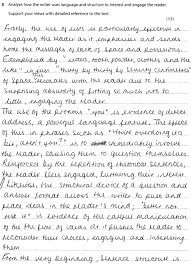 8 Analyse how the writer uses language and structure to interest and engage the reader.
Support your views with detailed reference to the text.
(15)
Firstly, the use of lists is particularly effective in
engaging the reader as it emphasises and sends
home the messages of lack of space and possessions.
Exemplified by "tooth powder, clothes and the
like" is just "thirty by thirty by seventy centimetres"
of space, the reader due to the
surprising absurdity of fitting so much into so
little, engaging the reader.
The use of the pronoun "you" is evidence of direct
address, a powerful language feature. The effect
of this in phrases such as "You're overdoing it a
bit, aren't you?" is to immediately involve
the reader, causing them to question themselves.
Reinforced by the repetition of rhetorical questions,
the reader feels engaged, furthering their interest.
Likewise, the structural device of a question and
answer format allows the writer to push and
place ideas in the reader's mind, "better
just it" is evidence of the careful manipulation
of the flow of ideas as it pushes the reader to
reconsider their choices, engaging and interesting
them
From the very beginning, general structure is